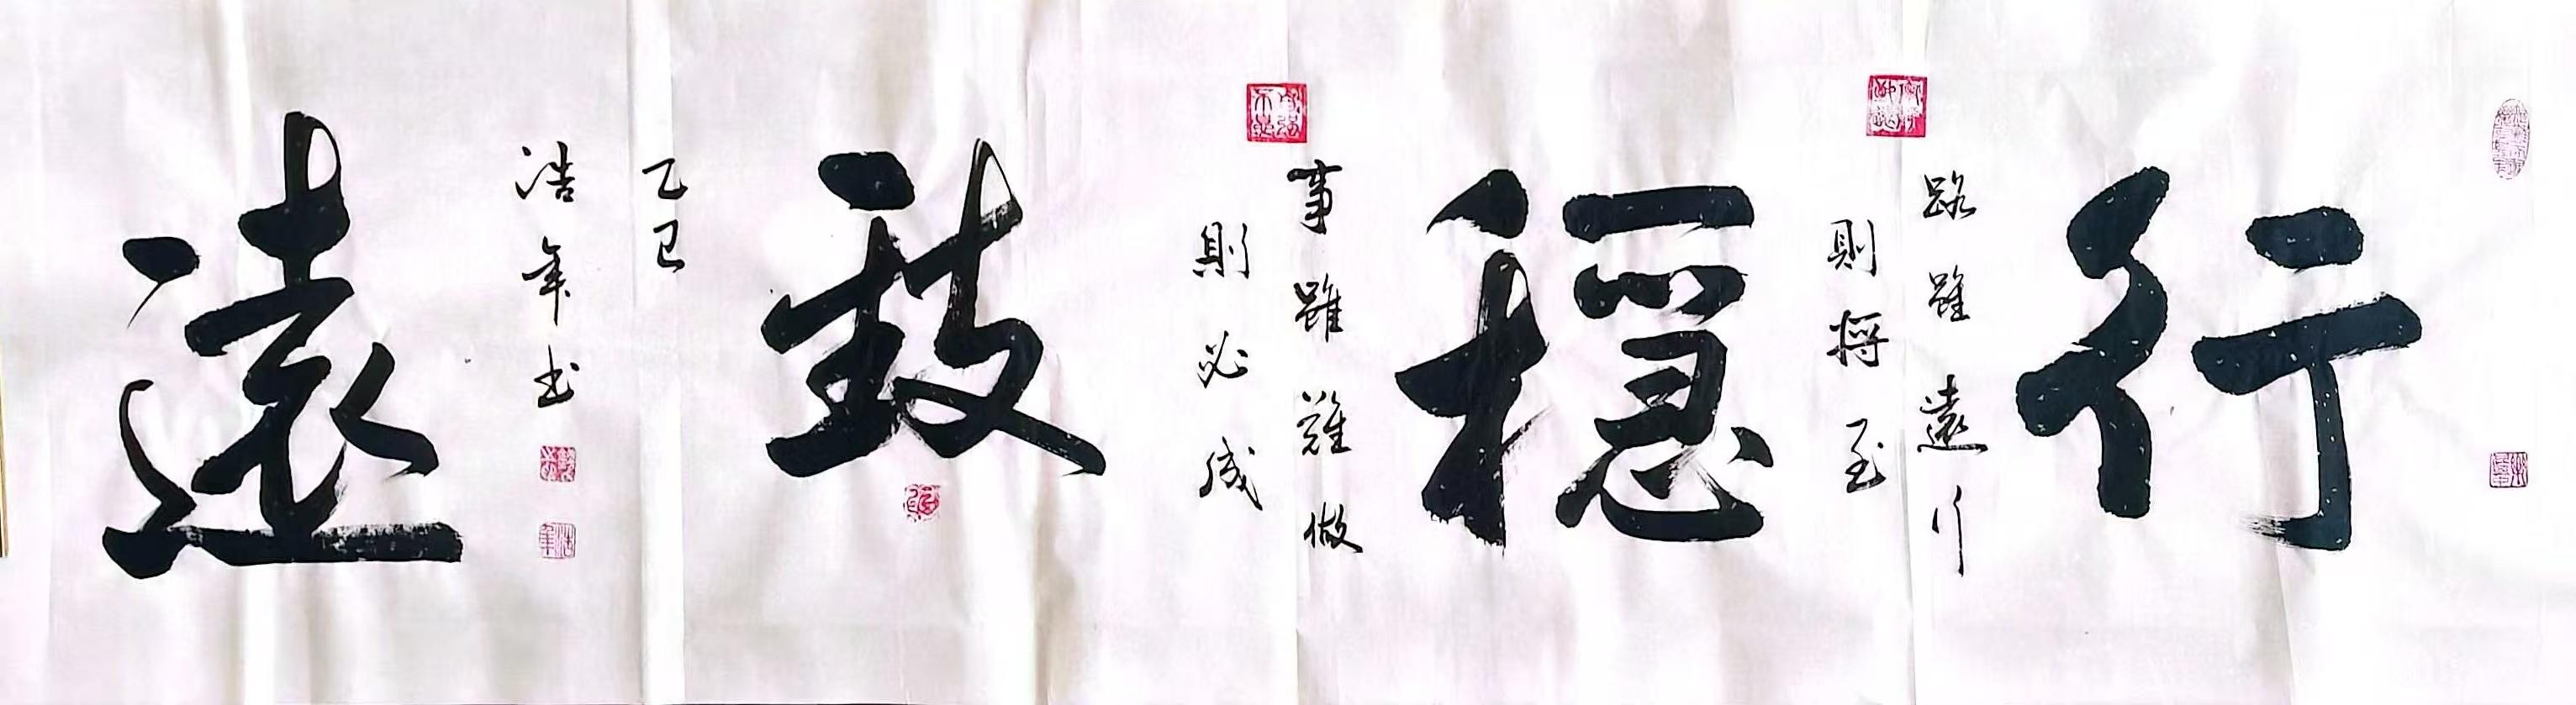 行
路雖遠行
則將至
穩
事雖難做
則必成
致
乙巳
浩年书
遠
浩年